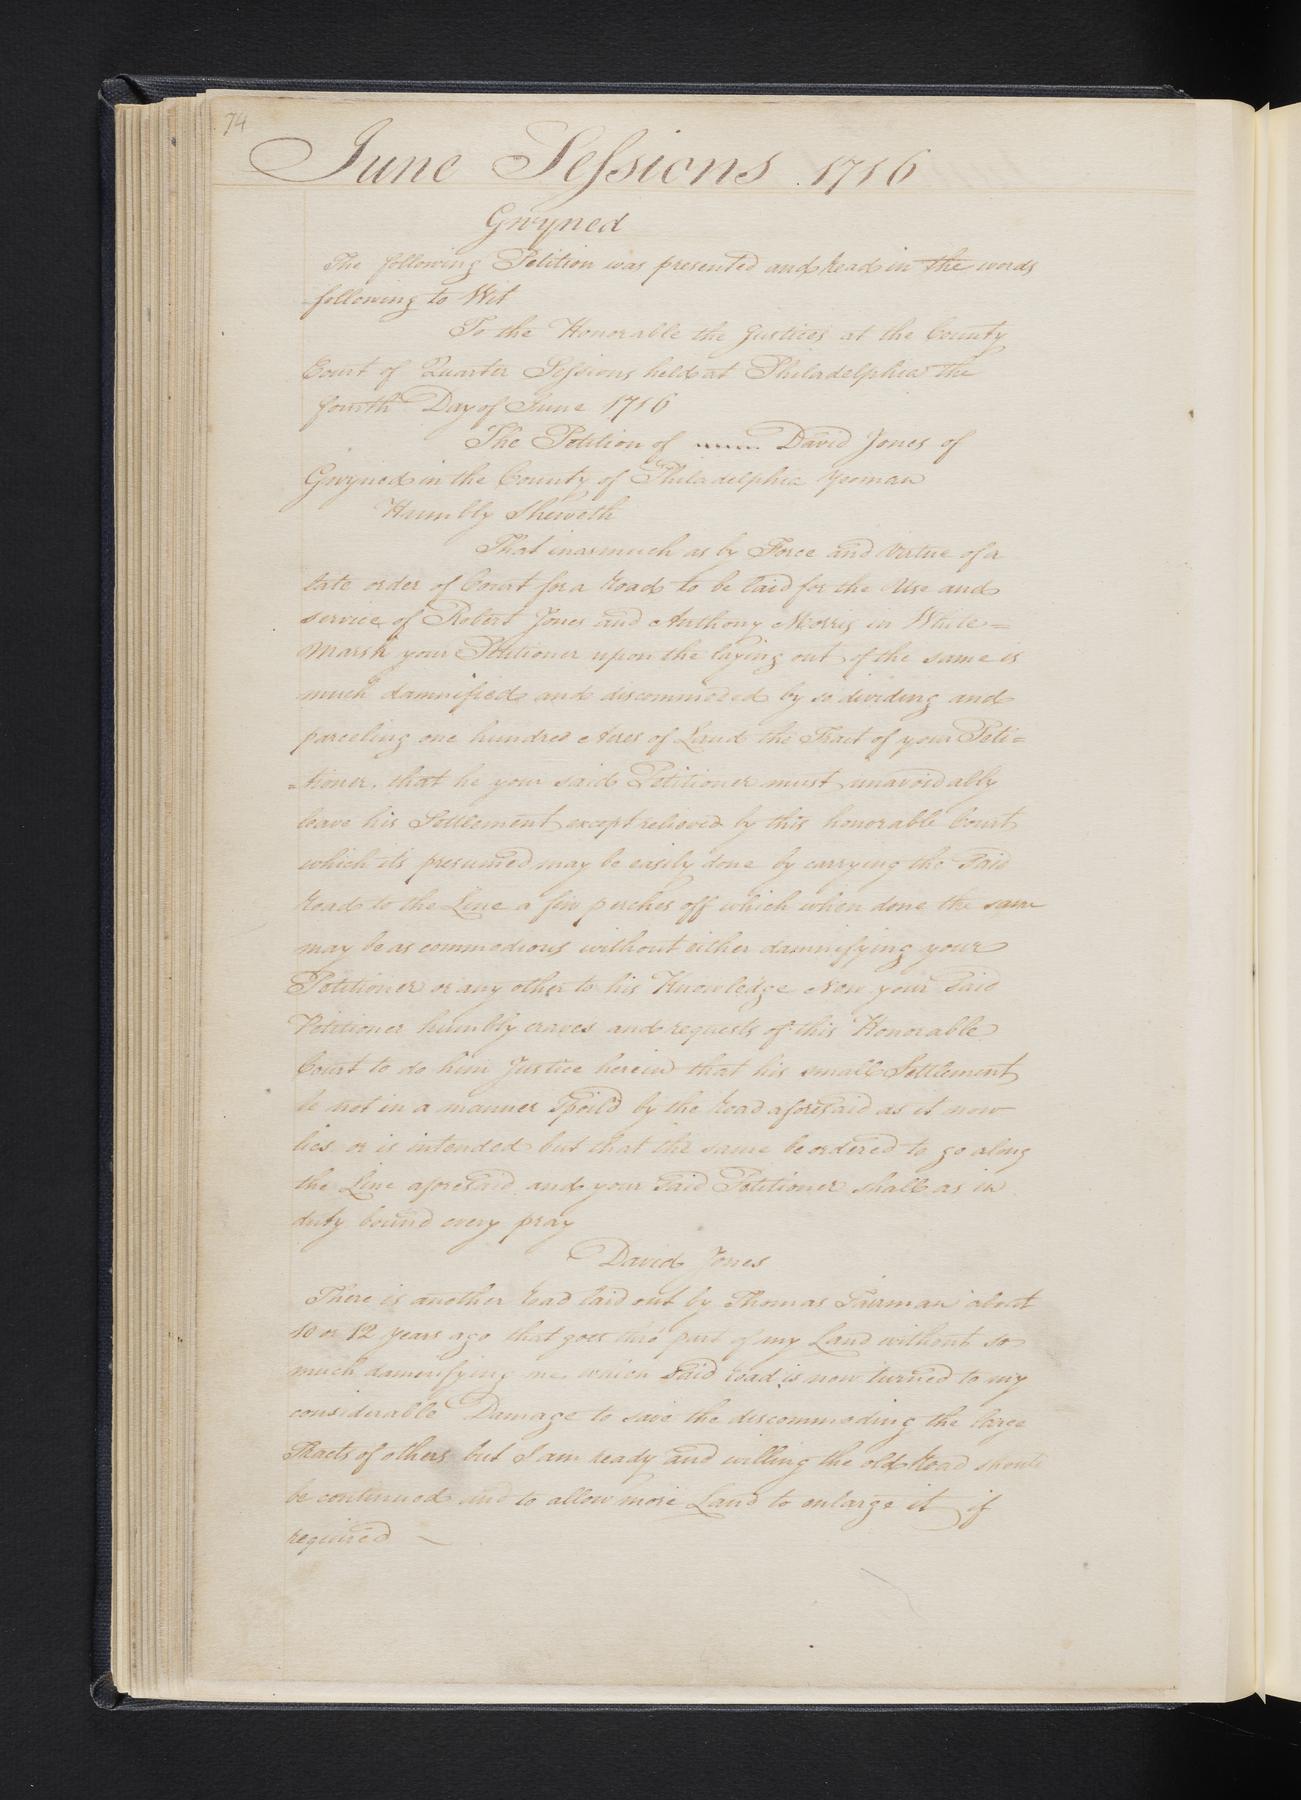 74
June Sessions 1716
Gwyned
The following Petition was presented and Read in the words
following to Wit
To the Honorable the Justices at the County
Court of Quarter Sessions held at Philadelphia the
fourth Day of June 1716
The Petition of David Jones of
Gwyned in the County of Philadelphia Yeoman
Humbly Sheweth
That inasmuch as by Force and Virtue of a
late order of Court for a Road to be laid for the Use and
service of Robert Jones and Anthony Morris in White=
Marsh your Petitioner upon the laying out of the same is
much damnified and discommoded by so dividing and
parceling one hundred Acres of Land the Tract of your Peti=
=tioner, that he your said Petitioner must unavoidably
leave his Settlement except relieved by this honorable Court
which its presumed may be easily done by carrying the Said
Road to the Line a few perches off which when done the same
may be as commodious without either damnifying your
Petitioner or any other to his Knowledge Now your Said
Petitioner humbly craves and requests of this Honorable
Court to do him Justice herein that his small Settlement
be not in a manner Spoil'd by the Road aforesaid as it now
lies or is intended but that the same be ordered to go along
the Line aforesaid and your Said Petitioner shall as in
duty bound every pray
David Jones
There is another Road laid out by Thomas Fairman about
10 or 12 years ago that goes thro' part of my Land without so
much damnifying me which Said Road is now turned to my
considerable Damage to save the discommoding the large
Tracts of others but I am ready and willing the old Road should
be continued and to allow more Land to enlarge it if
required